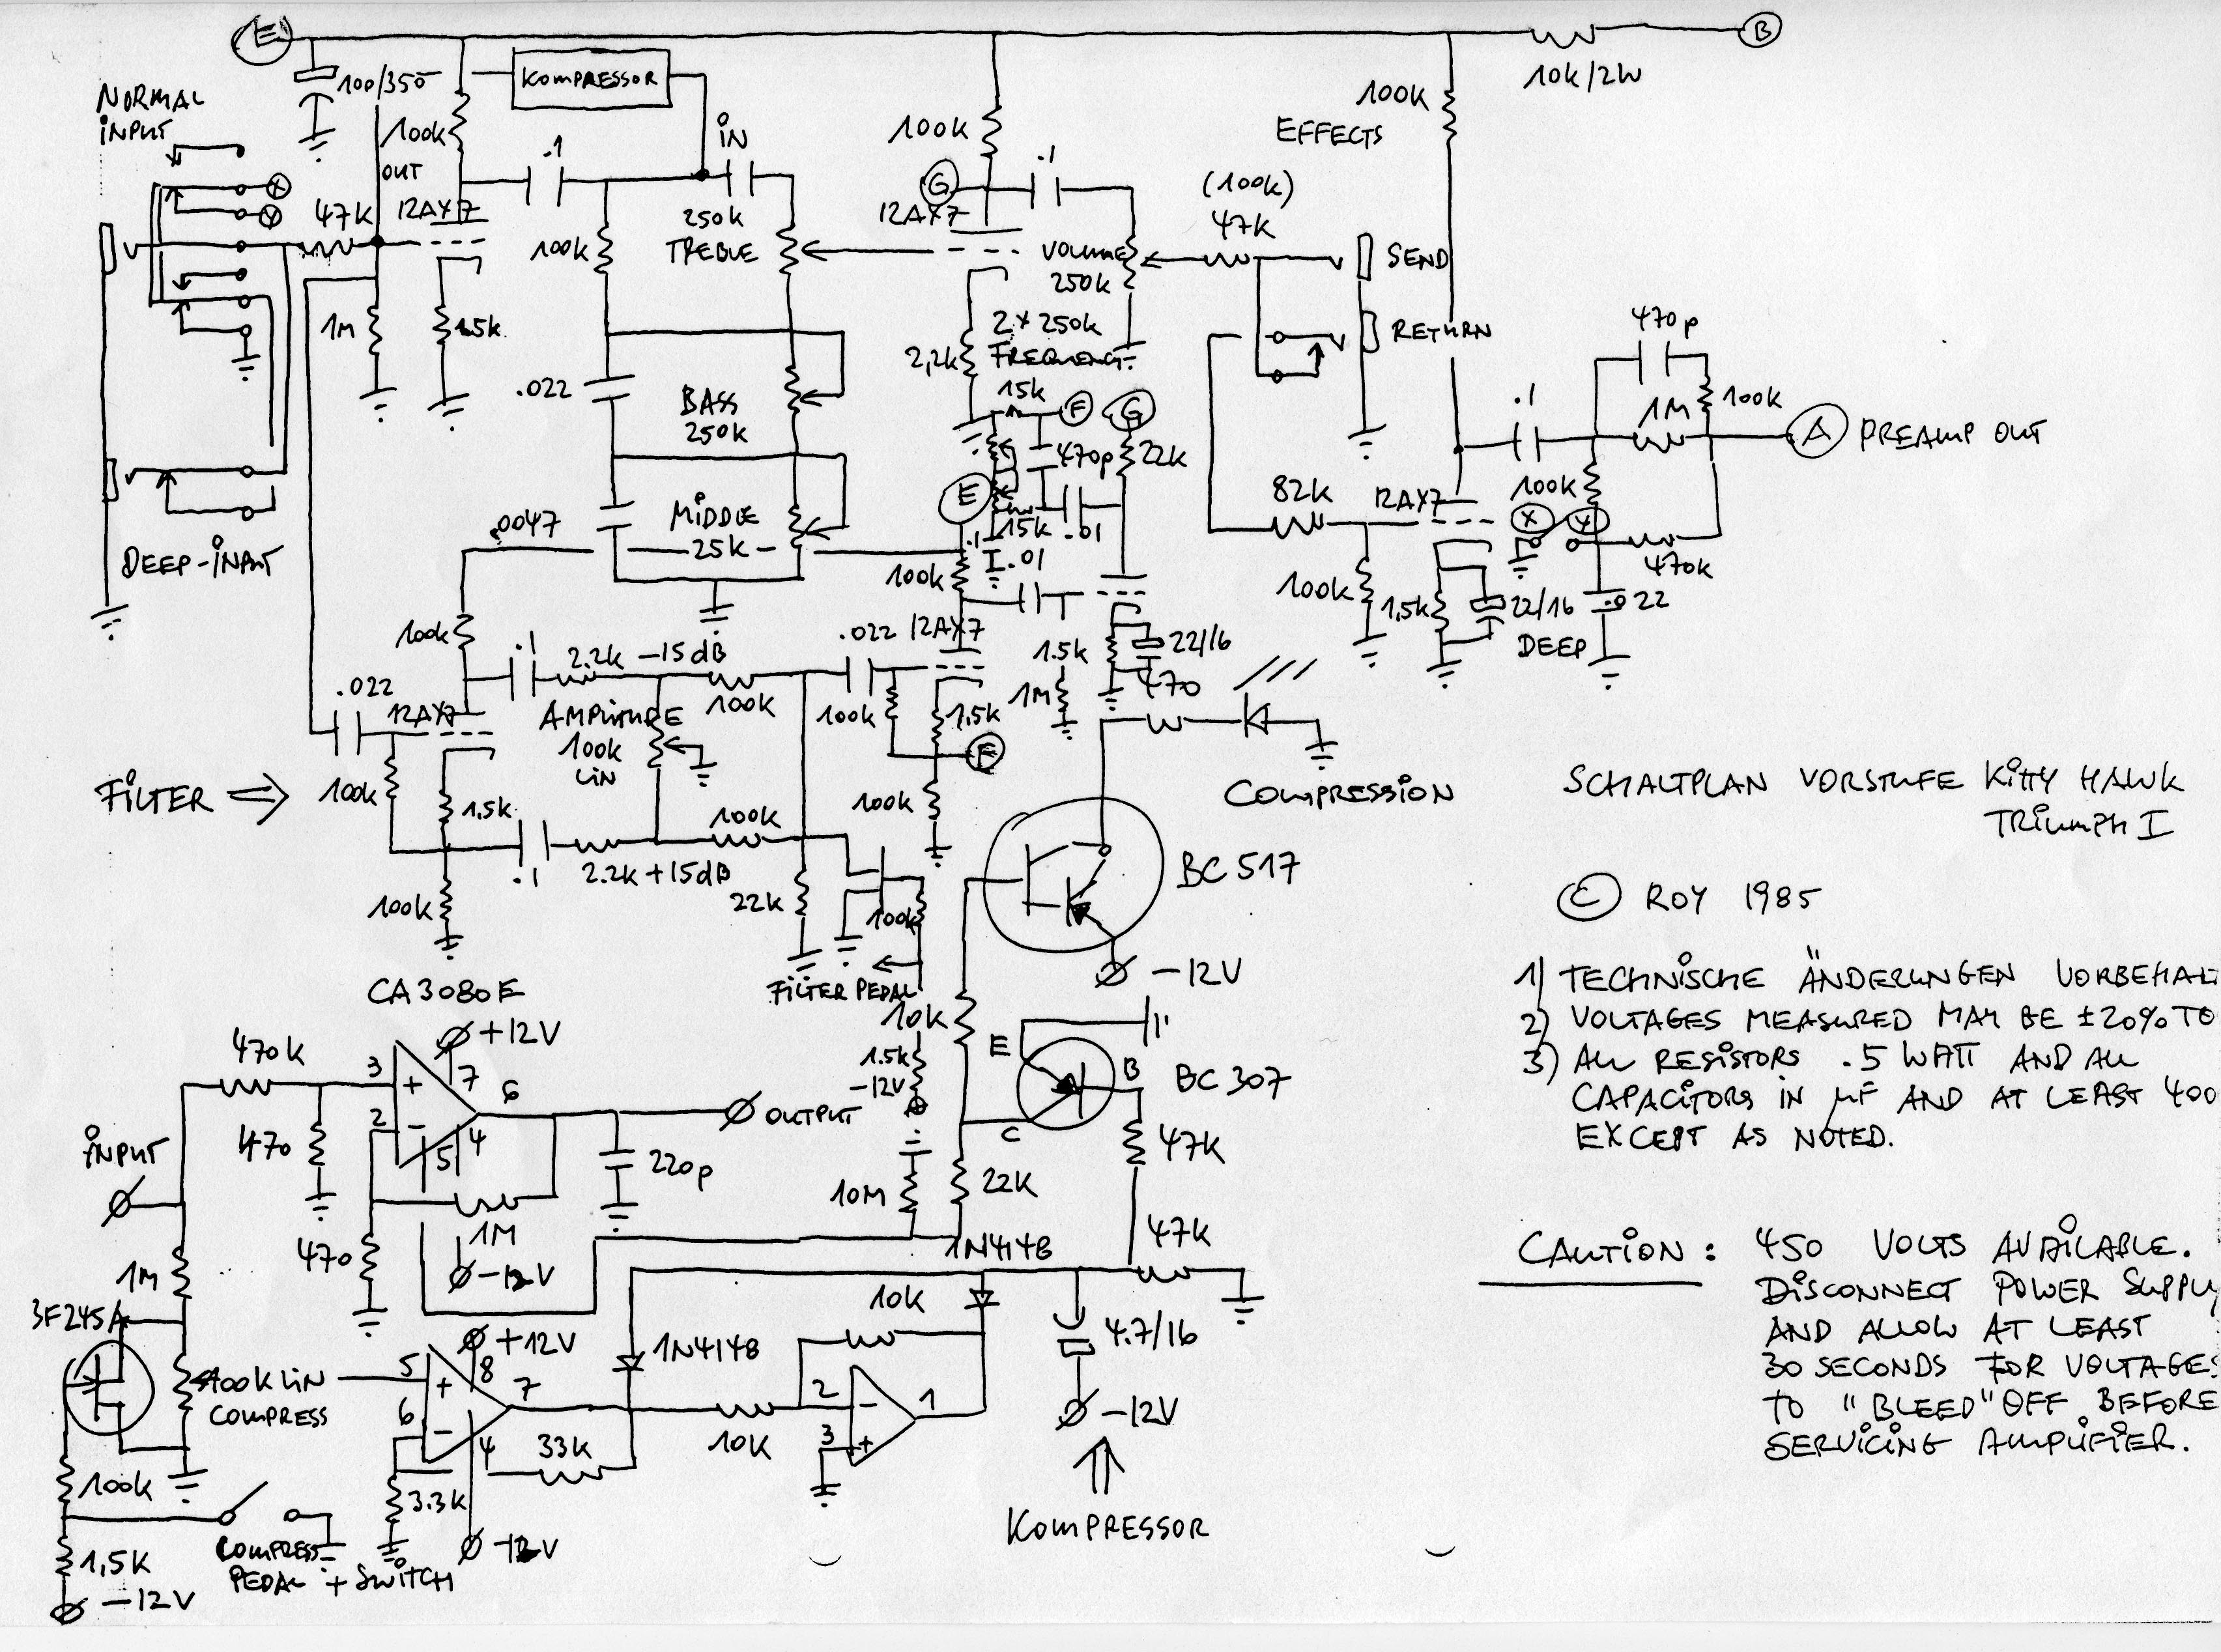 E
B
10k/2W
100/350
KOMPRESSOR
NORMAL
INPUT
100k
OUT
.1
IN
100k
100k
EFFECTS
X
Y
47K
12AX7
250k
TREBLE
100k
G
12AX7
.1
VOLUME
250k
(100k)
47K
SEND
RETURN
1M
1.5k
.022
BASS
250k
2,2k
2 x 250k
15k
F
G
470p
22k
470p
1M
100k
.1
A
PREAMP OUT
.0047
MIDDLE
25K
E
15k
.01
.1
.01
100k
82k
12AX7
100k
X
Y
470k
DEEP-INPUT
100k
1,5k
22/16
DEEP
.022
100k
.1
2.2k
-15dB
100k
.022
12AX7
1.5k
22/16
1M
470
.022
12AX7
AMPLITUDE
100k
LIN
100k
1,5k
F
FILTER ⇒
100k
1.5k
100k
100k
.1
2.2k
+15dB
100k
22k
100k
FILTER PEDAL
COMPRESSION
BC517
-12V
SCHALTPLAN VORSTUFE KITTY HAWK
TRIUMPH I
© ROY 1985
1) TECHNISCHE ÄNDERUNGEN VORBEHAL
2) VOLTAGES MEASURED MAY BE ±20% TO
3) ALL RESISTORS .5 WATT AND ALL
CAPACITORS IN µF AND AT LEAST 400
EXCEPT AS NOTED.
CA3080E
+12V
470k
3
+
7
6
2
-
5
4
470
OUTPUT
220p
INPUT
1M
-12V
470
10k
1.5k
-12V
E
B
C
BC307
47K
10M
22K
47K
1N4148
10k
4.7/16
-12V
KOMPRESSOR
1M
100K LIN
COMPRESS
+12V
5
+
8
7
6
-
4
1N4148
33k
10K
2
-
3
+
1
3.3k
-12V
100k
1,5K
-12V
COMPRESS
PEDAL + SWITCH
CAUTION: 450 VOLTS AVAILABLE.
DISCONNECT POWER SUPPLY
AND ALLOW AT LEAST
30 SECONDS FOR VOLTAGES
TO "BLEED" OFF BEFORE
SERVICING AMPLIFIER.